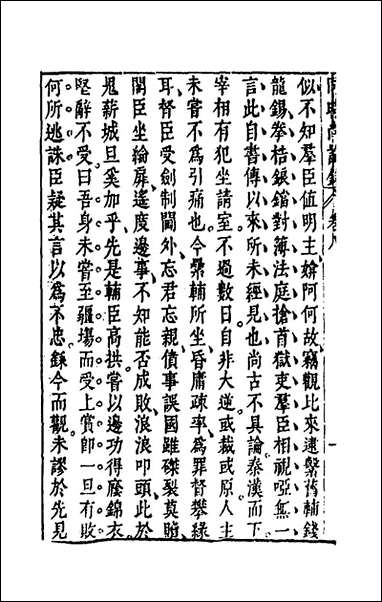 似不知羣臣值明主媕阿何故竊觀比來逮繫舊輔錢
龍錫拳梏鋃鐺對簿法庭搶首獄吏羣臣相視啞無一
言此自書傳以來所未經見也尚古不具論秦漢而下
宰相有犯坐請室不過數日自非大逆或裁或原人主
未嘗不為引痛也今𤍠輔所坐昏庸疎率為罪督攀緣
耳督臣受劍制閫外忘君忘親僨事誤國雖磔裂莫贖
閣臣坐綸扉遙度邊事不知能否成敗浪浪叩頭此於
鬼薪城旦奚加乎先是輔臣高拱嘗以邊功得廕錦衣
堅辭不受曰吾身未嘗至疆埸而受上賞卽一旦有敗
何所逃誅臣疑其言以為不忠繇今而觀未謬於先見